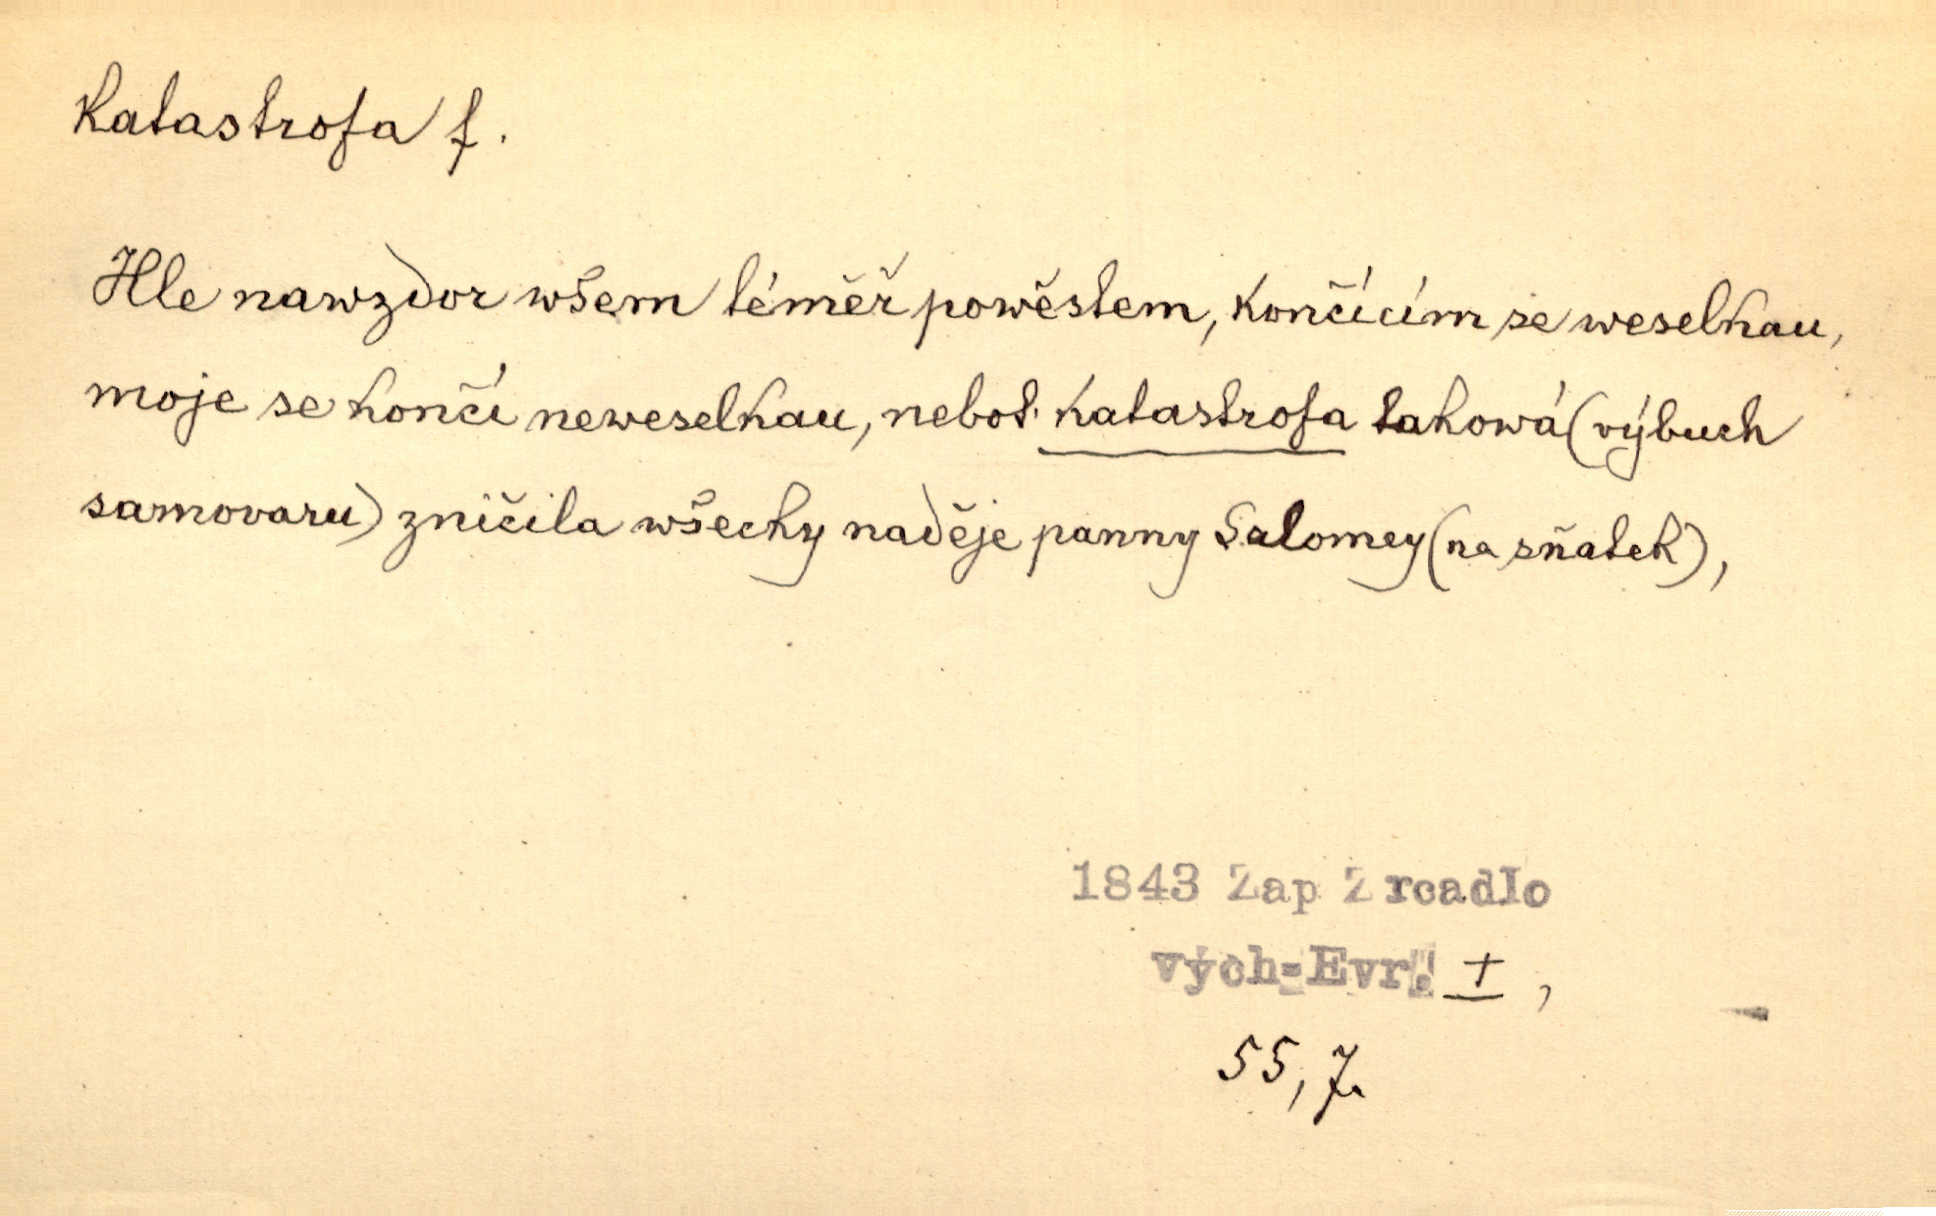 Katastrofa f.
Hle nawzdor wšem téměř powěstem, končícím se weselkau,
moje se končí neweselkau, neboť katastrofa taková (výbuch
samovaru) zničila wšechy naděje panny Salomey (na sňatek),
1843 Zap Zrcadlo
vých-Evr. I,
55, 7.